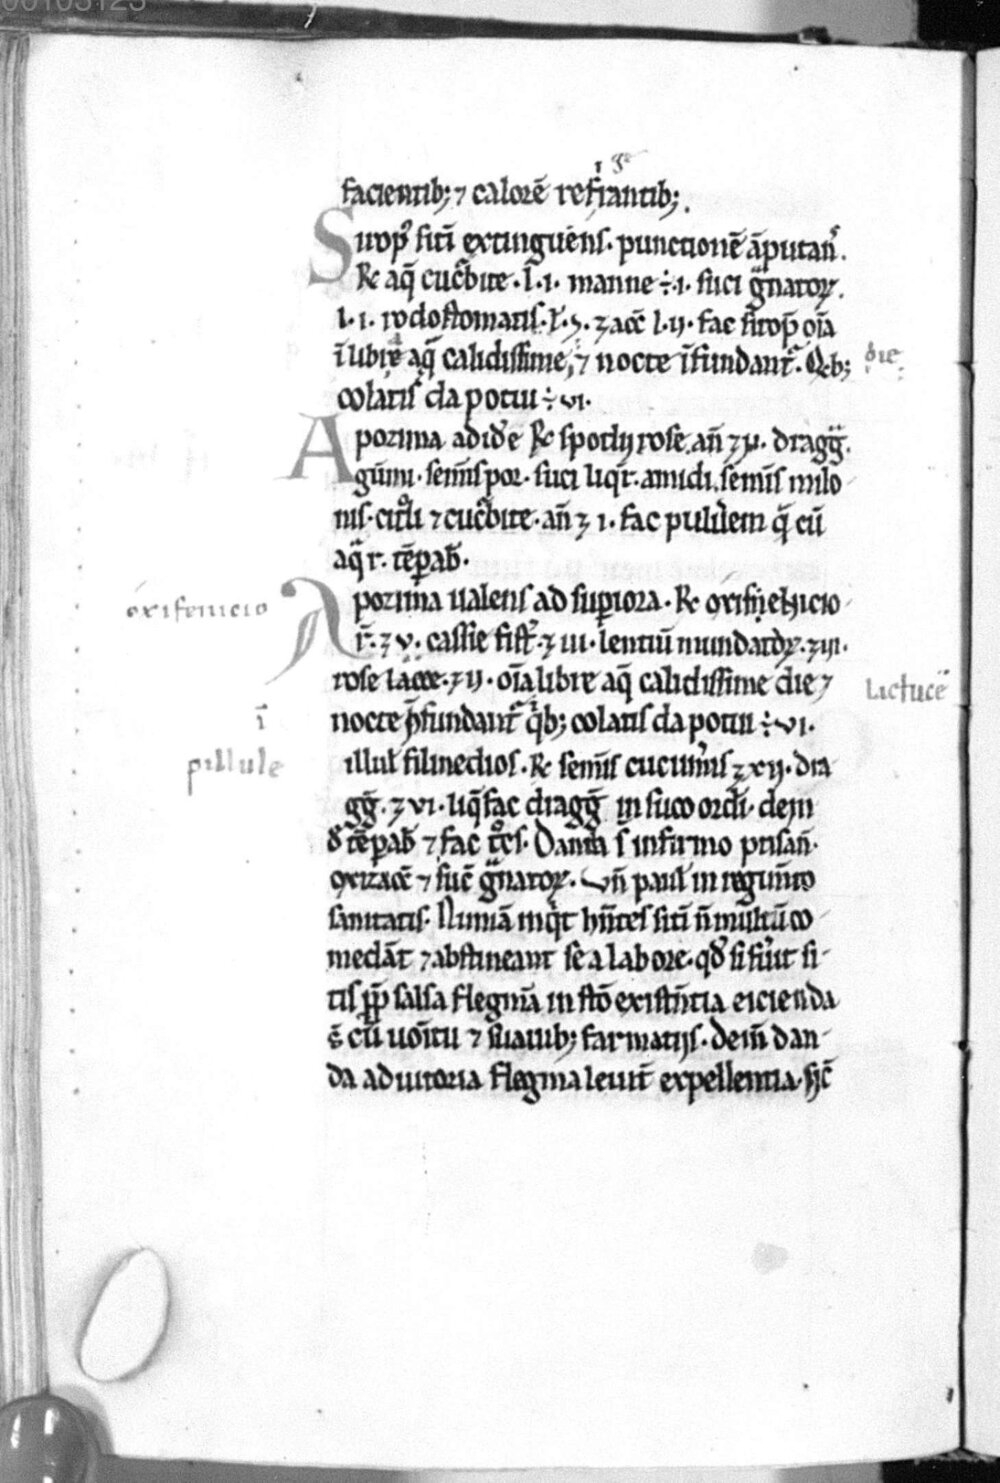 facientib; ⁊ calorē refriantib;.
Sirop᷒ sitī extinguēns. punctionē āputan᷒.
R̵ aq̄ cucb̄ite. l̄.i. manne ÷.i. suci gͣnatoꝝ.
l.i. rodostomatis. zacc̄ l.ii. fac sirop̄ oīa
ī libr̄ aq̄ calidissime, ⁊ nocte īfundant᷒. Q̇b; die
colatis da potui ÷ vi.
Apozima ad idē R̵ spodii rose. an̄ ʒ ii. dragg̃.
gūmi. sem̄is por. suci liqr̄. amidi. sem̄is milo
nis. citͦli ⁊ cucb̄ite. an̄ ʒ i. fac puluͤem q̄ cū
aq̄ r. tēꝑab̄.
Apozima ualens ad suꝑiora. R̵ orifinehicio
oxifenicio
r̄. ʒ v. cassie fist᷒. ʒ iii. lentiū mundatoꝝ. ʒ iii.
rose lacce. ʒ ii. oīa libre aq̄ calidissime die ⁊
lictucē
nocte īfundant᷒ q̇b; colatis da potui ÷ vi.
pillule
illul̄ silinedios. R̵ sem̄is cucum̄is ʒ xii. dra
gg̃. ʒ vi. liq̄fac dragg̃ in suco ordī. dein
tēꝑab̄ ⁊ fac tͦcs. Danda s̄ infirmo ptisan̄.
oxizacc̄ ⁊ suc̄ gͣnatoꝝ. Vn̄ paul̄ in regim̄to
sanitatis. Nimiā inqͥt hn̄tes sitī n̄ multū co
medāt ⁊ abstineant se a labore. qd̄ si fu̾it si
tis ꝓp̄ salsa flegmā in sto̅ existn̄tia eicienda
ē cū uoītu ⁊ suauib; farmatiis. dein̄ dan
da adiutoria flegma leuit̄ expellentia. sic̄